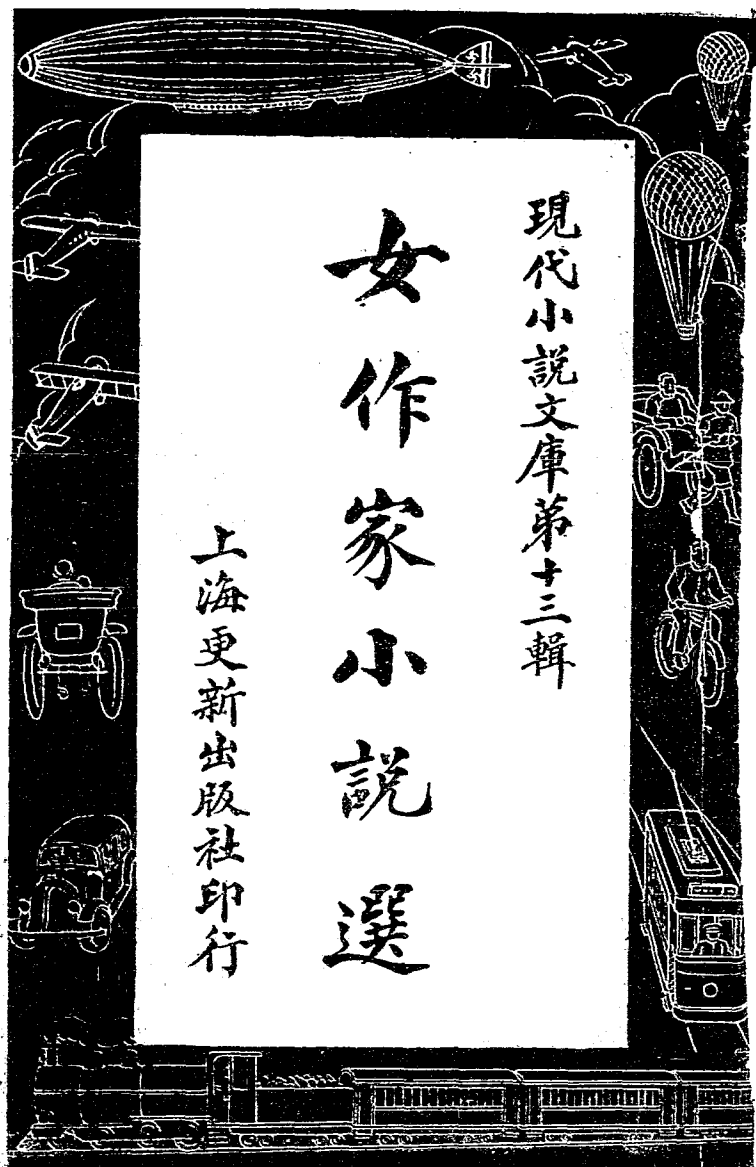 現代小説文庫第十三輯
女作家小説選
上海更新出版社印行